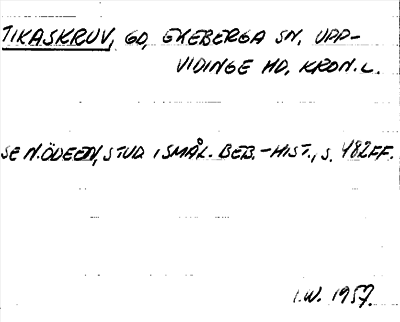 TIKASKRUV, GD, EKEBERGA SN, UPP-
VIDINGE HD, KRON.L.
SE N.ÖDEEN, STUD I SMÅL. BEB.-HIST., S. 482FF.
I.W. 1957.